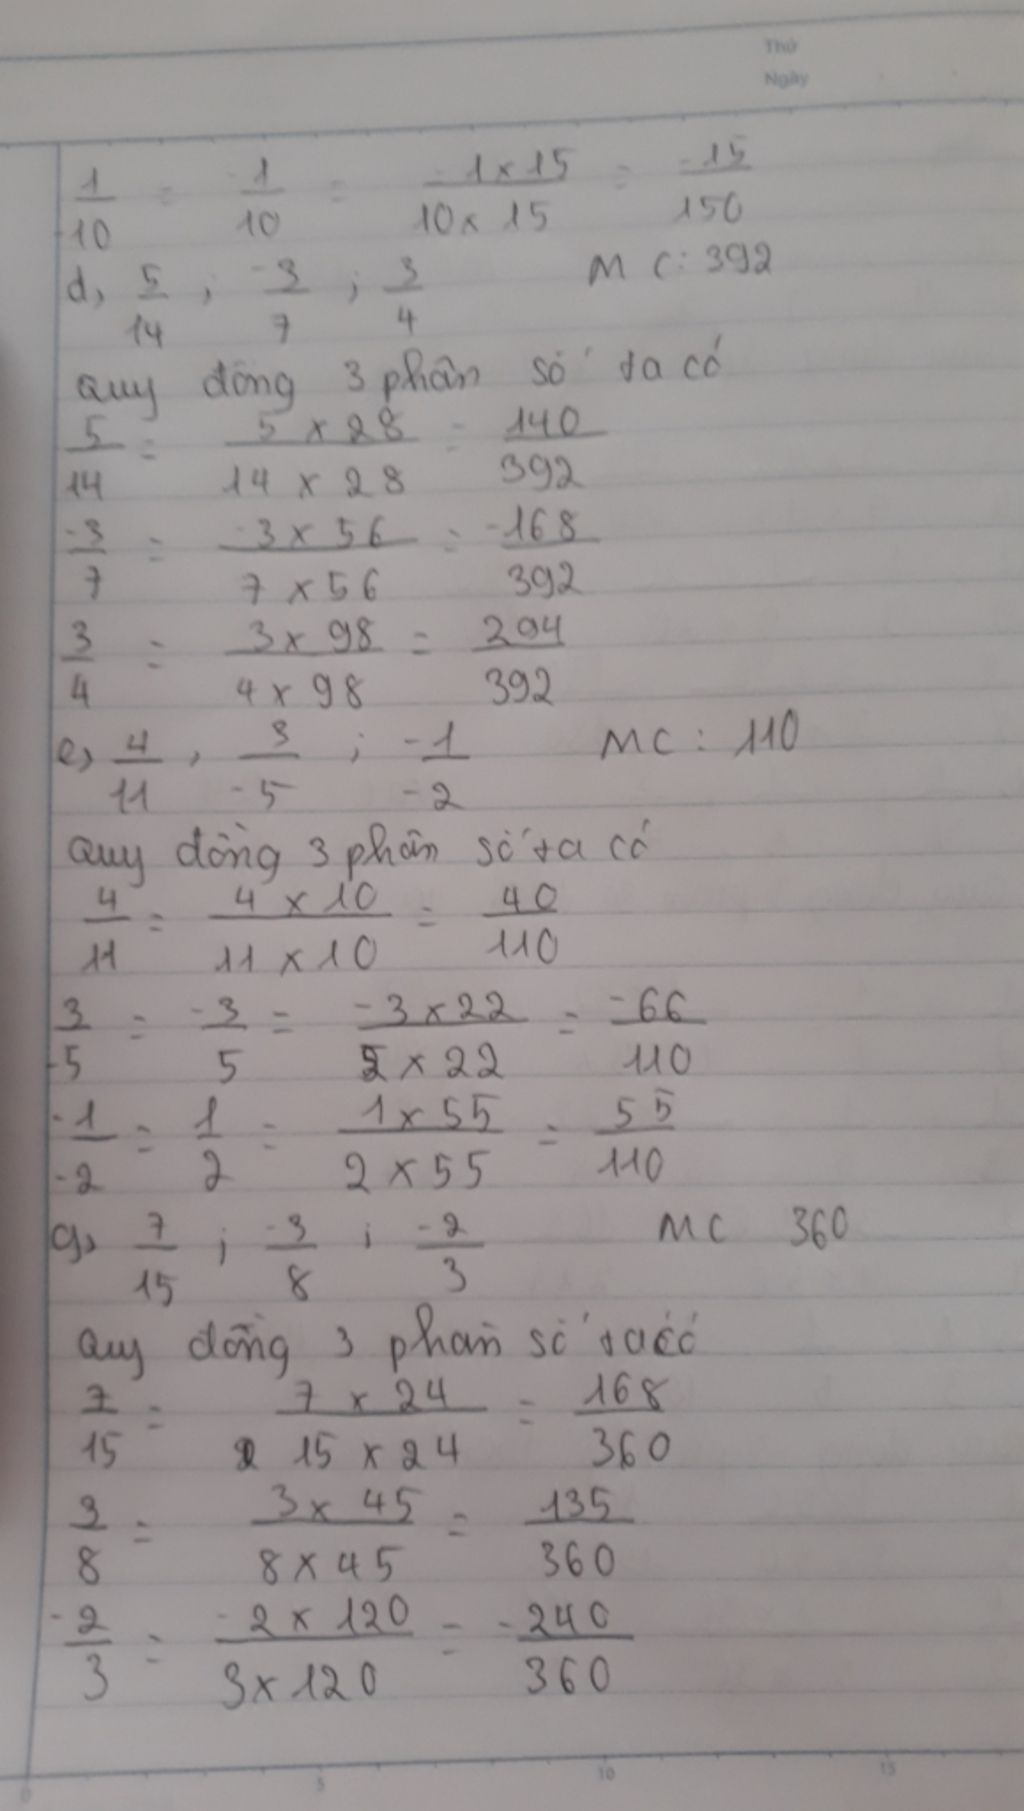 Thứ
Ngày
1/-10 = -1/10 = -1 x 15/10 x 15 = -15/150
d, 5/14 ; -3/7 ; 3/4 MC: 392
Quy đồng 3 phân số ta có
5/14 = 5 x 28/14 x 28 = 140/392
-3/7 = -3 x 56/7 x 56 = -168/392
3/4 = 3 x 98/4 x 98 = 294/392
e, 4/11 , 3/-5 ; -1/-2 MC: 110
Quy đồng 3 phân số ta có
4/11 = 4 x 10/11 x 10 = 40/110
3/-5 = -3/5 = -3 x 22/5 x 22 = -66/110
-1/-2 = 1/2 = 1 x 55/2 x 55 = 55/110
g, 7/15 ; -3/8 ; -2/3 MC 360
Quy đồng 3 phân số ta có
7/15 = 7 x 24/15 x 24 = 168/360
3/8 = 3 x 45/8 x 45 = 135/360
-2/3 = -2 x 120/3 x 120 = -240/360
0 5 10 15